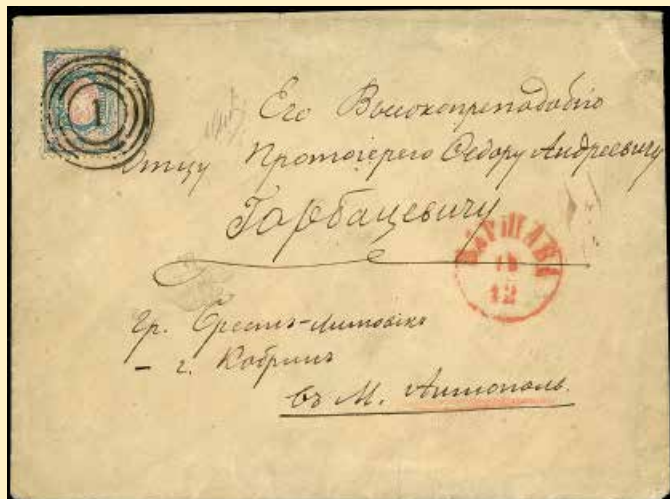 1
Его Высокопреподобію
Отцу Протоіерею Ѳедору Андреевичу
Гарбацевичу
ВАРШАВА
12
гр. Брестъ-Литовскъ
– г. Кобринъ
въ М. Антополь.